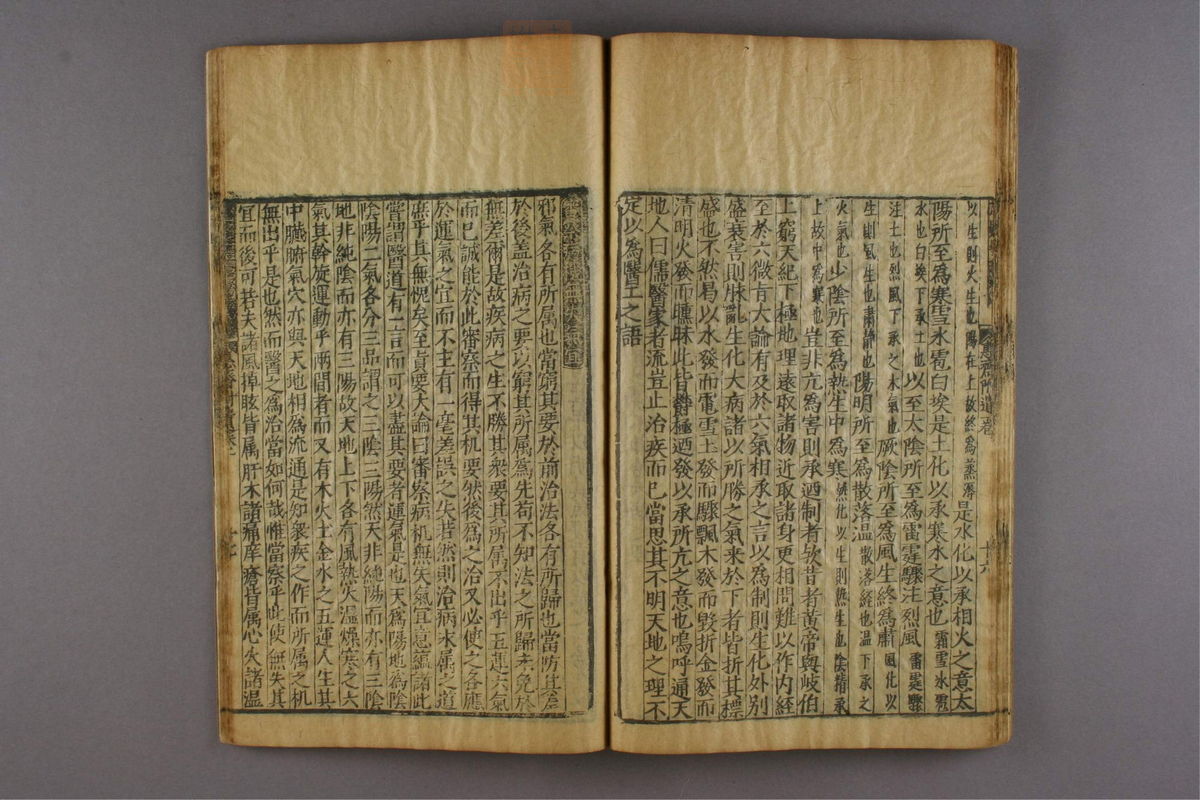 以生則火生也陽在上故終為蒸溽是水化以承相火之意太
陽所至為寒雪水雹白埃是土化以承寒水之意也霜雪氷雹
水也白埃下承土也以至太陰所至為雷霆驟注烈風雷霆驟
注土也烈風下承之木氣也厥陰所至為風生終為肅風化以
生則風生也肅靜也陽明所至為散落温散落經也温下承之
火氣也少陰所至為熱生中為寒熱化以生則熱生也陰精承
上故中為寒也豈非亢為害則承廼制者歟昔者黄帝與岐伯
上窮天紀下極地理遠取諸物近取諸身更相問難以作内經
至於六微旨大論有及於六氣相承之言以為制則生化外列
盛衰害則敗亂生化大病諸以所勝之氣来於下者皆折其標
盛也不然曷以水發而雹雪土發而驟飄木發而毀折金發而
清明火發而曛昧此皆鬱極廼發以承所亢之意也嗚呼通天
地人曰儒醫家者流豈止治疾而已當思其不明天地之理不
足以為醫工之語
邪氣各有所属也當窮其要於前治法各有所歸也當防其差
於後盖治病之要以窮其所属為先苟不知法之所歸未免於
無差爾是故疾病之生不勝其衆要其所属不出乎五運六氣
而已誠能於此審察而得其机要然後為之治又必使之各應
於運氣之宜而不主有一毫差誤之失若然則治病求属之道
庶乎其無愧矣至真要大論曰審察病机無失氣宜意蘊諸此
嘗謂醫道有一言而可以盡其要者運氣是也天為陽地為陰
陰陽二氣各分三品謂之三陰三陽然天非純陽而亦有三陰
地非純陰而亦有三陽故天地上下各有風熱火温燥寒之六
氣其斡旋運動乎兩間者而又有木火土金水之五運人生其
中臟腑氣穴亦與天地相為流通是知衆疾之作而所属之机
無出乎是也然而醫之為治當如何哉惟當察乎此使無失其
宜而後可若夫諸風掉眩皆属肝木諸痛痒瘡皆属心火諸温